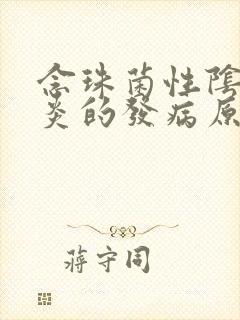 念珠菌性陰
炎的發病原
蔣守同